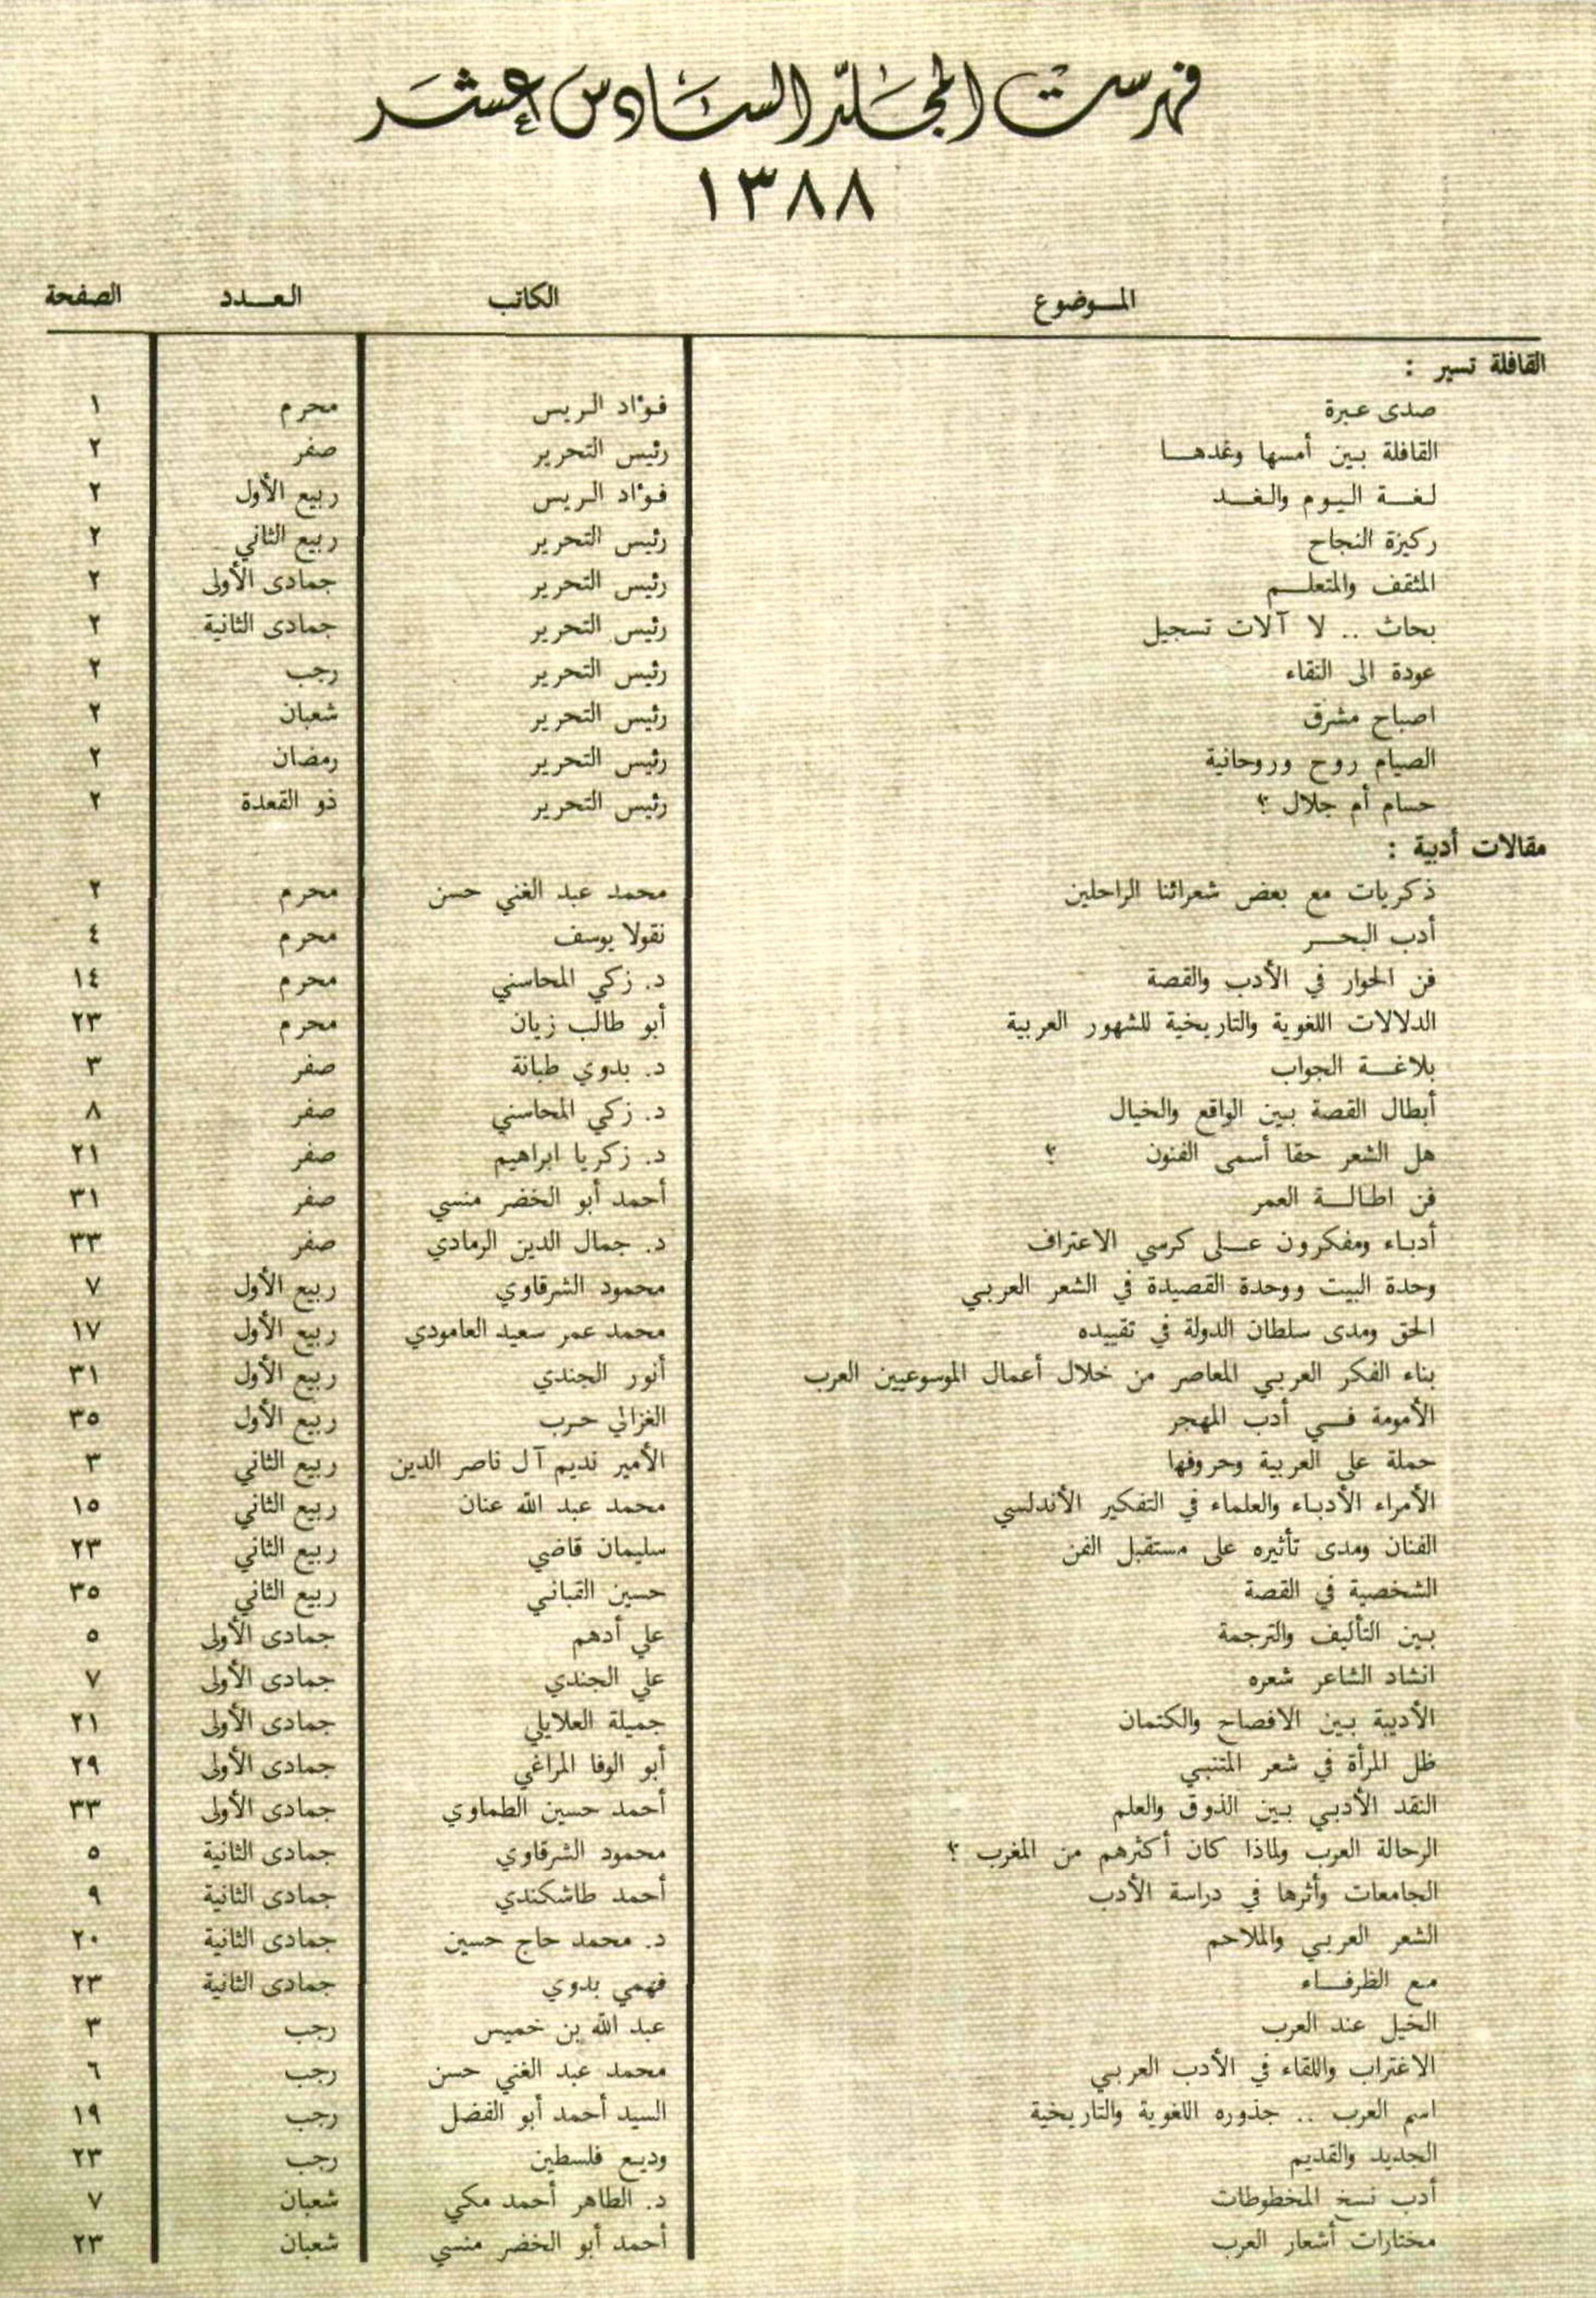 فهرست المجلد السادس عشر
١٣٨٨
الموضوع الكاتب العدد الصفحة
القافلة تسير :
صدى عبرة فؤاد الريس محرم ١
القافلة بين أمسها وغدها رئيس التحرير صفر ٢
لغة اليوم والغد فؤاد الريس ربيع الأول ٢
ركيزة النجاح رئيس التحرير ربيع الثاني ٢
المثقف والمتعلم رئيس التحرير جمادى الأولى ٢
بحاث .. لا آلات تسجيل رئيس التحرير جمادى الثانية ٢
عودة الى النقاء رئيس التحرير رجب ٢
اصباح مشرق رئيس التحرير شعبان ٢
الصيام روح وروحانية رئيس التحرير رمضان ٢
حسام أم جلال ؟ رئيس التحرير ذو القعدة ٢
مقالات أدبية :
ذكريات مع بعض شعرائنا الراحلين محمد عبد الغني حسن محرم ٢
أدب البحر نقولا يوسف محرم ٤
فن الحوار في الأدب والقصة د. زكي المحاسني محرم ١٤
الدلالات اللغوية والتاريخية للشهور العربية أبو طالب زيان محرم ٢٣
بلاغة الجواب د. بدوي طبانة صفر ٣
أبطال القصة بين الواقع والخيال د. زكي المحاسني صفر ٨
هل الشعر حقا أسمى الفنون ؟ د. زكريا ابراهيم صفر ٢١
فن اطالة العمر أحمد أبو الخضر منسي صفر ٣١
أدباء ومفكرون على كرسي الاعتراف د. جمال الدين الرمادي صفر ٣٣
وحدة البيت ووحدة القصيدة في الشعر العربي محمود الشرقاوي ربيع الأول ٧
الحق ومدى سلطان الدولة في تقييده محمد عمر سعيد العامودي ربيع الأول ١٧
بناء الفكر العربي المعاصر من خلال أعمال الموسوعيين العرب أنور الجندي ربيع الأول ٣١
الأمومة في أدب المهجر الغزالي حرب ربيع الأول ٣٥
حملة على العربية وحروفها الأمير نديم آل ناصر الدين ربيع الثاني ٣
الأمراء الأدباء والعلماء في التفكير الأندلسي محمد عبد الله عنان ربيع الثاني ١٥
الفنان ومدى تأثيره على مستقبل الفن سليمان قاضي ربيع الثاني ٢٣
الشخصية في القصة حسين القباني ربيع الثاني ٣٥
بين التأليف والترجمة علي أدهم جمادى الأولى ٥
انشاد الشاعر شعره علي الجندي جمادى الأولى ٧
الأديبة بين الافصاح والكتمان جميلة العلايلي جمادى الأولى ٢١
ظل المرأة في شعر المتنبي أبو الوفا المراغي جمادى الأولى ٢٩
النقد الأدبي بين الذوق والعلم أحمد حسين الطماوي جمادى الأولى ٣٣
الرحالة العرب ولماذا كان أكثرهم من المغرب ؟ محمود الشرقاوي جمادى الثانية ٥
الجامعات وأثرها في دراسة الأدب أحمد طاشكندي جمادى الثانية ٩
الشعر العربي والملاحم د. محمد حاج حسين جمادى الثانية ٢٠
مع الظرفاء فهمي بدوي جمادى الثانية ٢٣
الخيل عند العرب عبد الله بن خميس رجب ٣
الاغتراب واللقاء في الأدب العربي محمد عبد الغني حسن رجب ٦
اسم العرب .. جذوره اللغوية والتاريخية السيد أحمد أبو الفضل رجب ١٩
الجديد والقديم وديع فلسطين رجب ٢٣
أدب نسخ المخطوطات د. الطاهر أحمد مكي شعبان ٧
مختارات أشعار العرب أحمد أبو الخضر منسي شعبان ٢٣